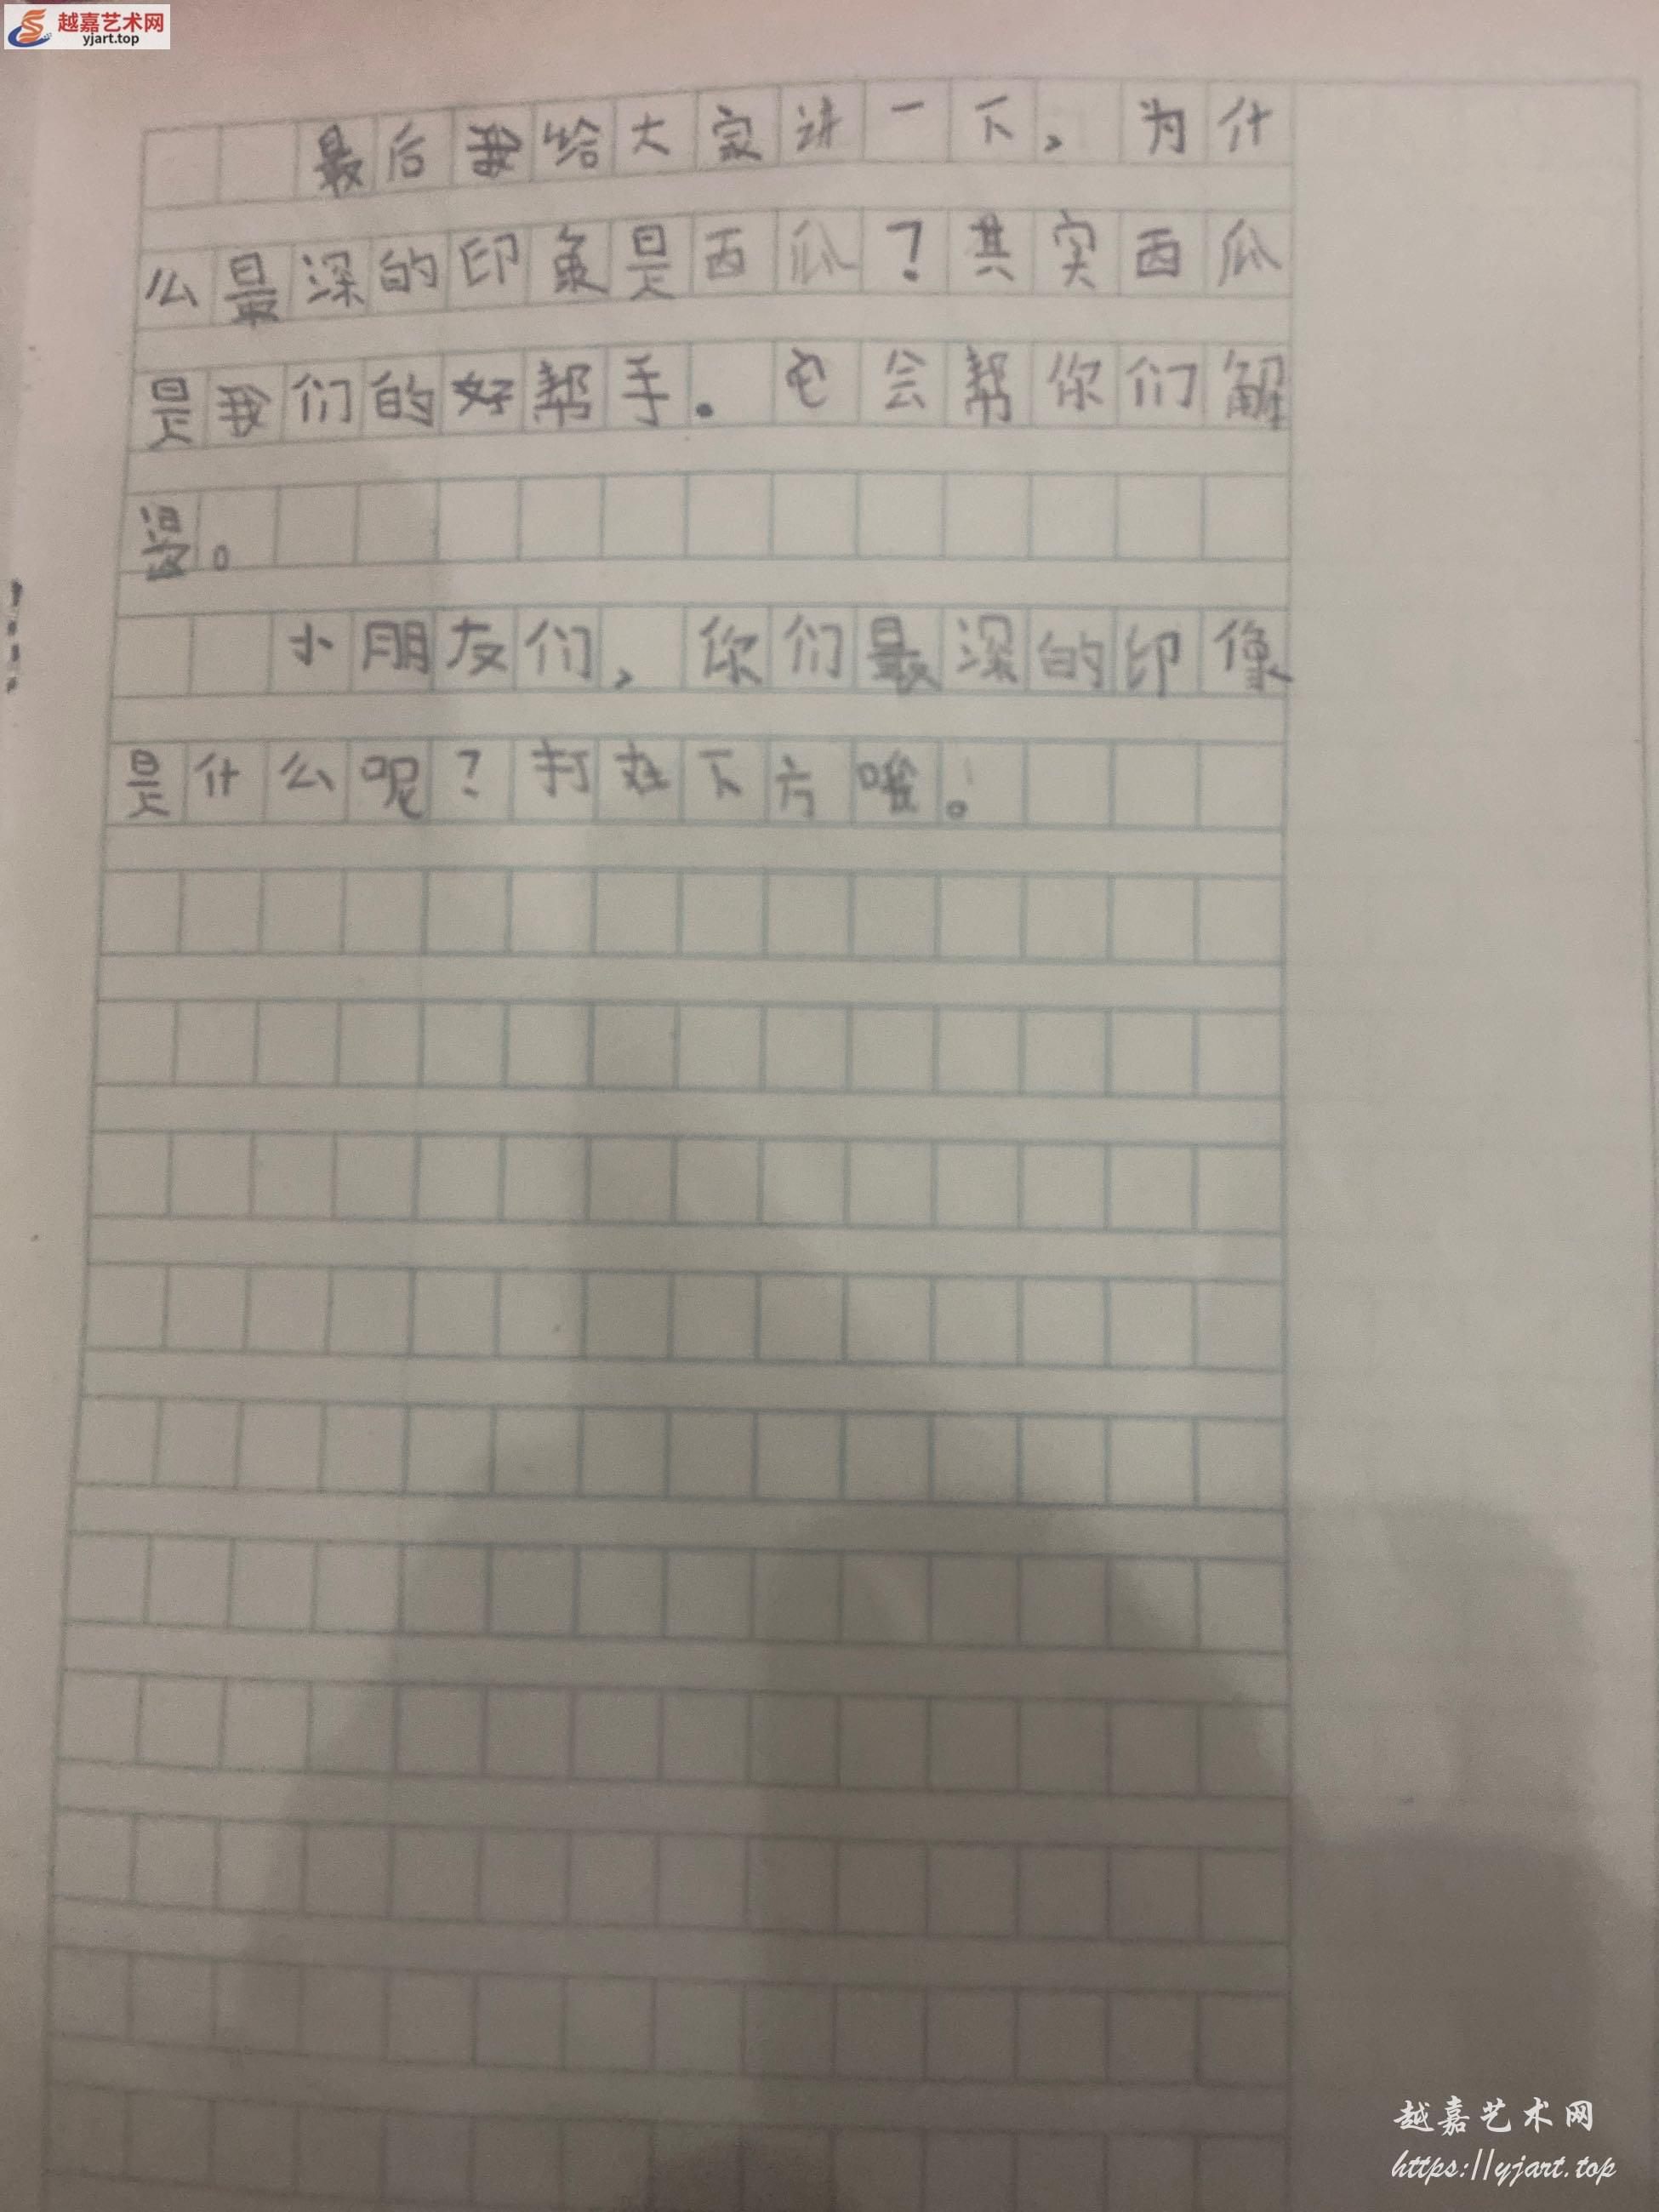 越嘉艺术网
yjart.top
最后我给大家讲一下，为什
么最深的印象是西瓜？其实西瓜
是我们的好帮手。它会帮你们解
。
小朋友们，你们最深的印像
是什么呢？打在下方哦。
越嘉艺术网
https://yjart.top